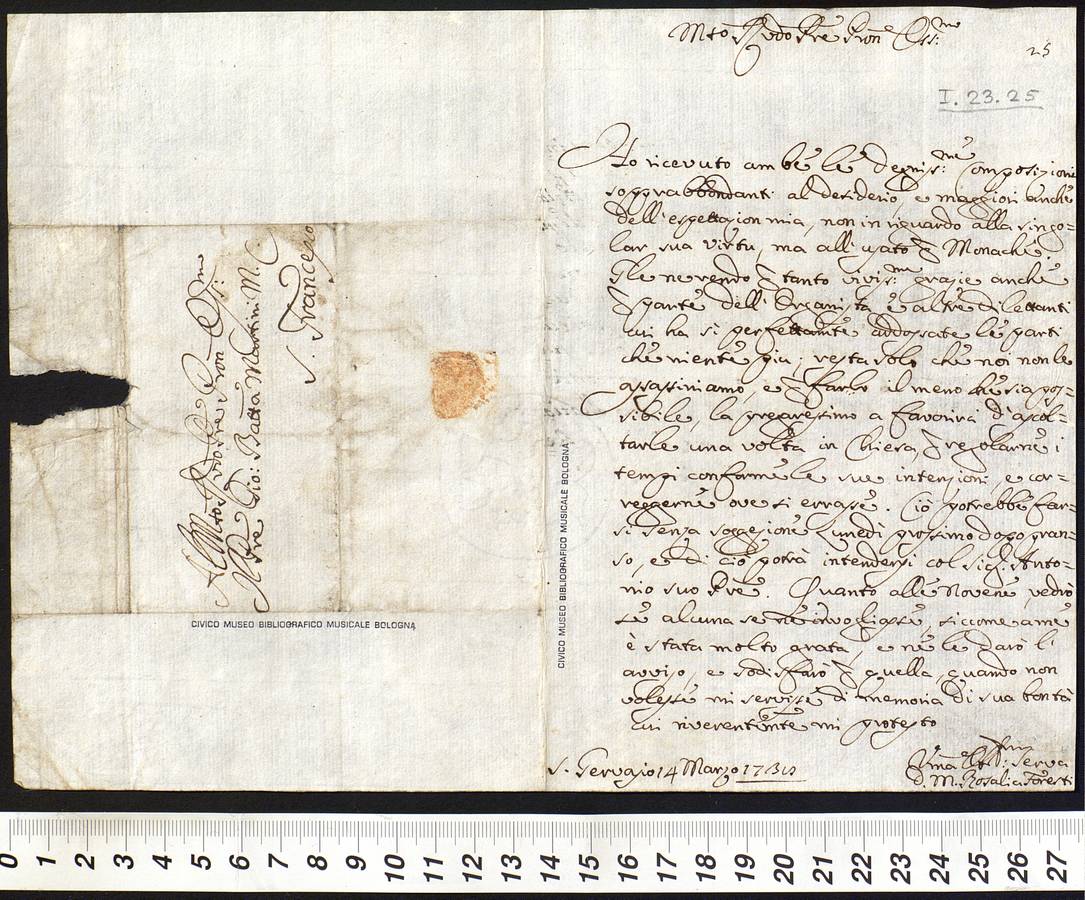 Mto Rvdo Pre Pron Oss:mo
25
I. 23. 25
Ho ricevuto ambe le degniss:me Composizioni
soprabbondanti al desiderio, e maggiori anche
dell'espettazion mia, non in riguardo alla singo=
lar sua virtù, ma all'usato Monache.
Gle ne rendo tanto viviss:me grazie anche
parte dell'Organista e altre dilettanti
cui ha si perfettamte addossate le parti
che niente più; resta solo che noi non le
assassiniamo, e farlo il meno che sia pos=
sibile, la pregaressimo a favorirci d'ascol=
tarle una volta in Chiesa, regolarne i
tempi conforme le sue intenzioni, e cor=
reggerne ove si errasse. Ciò potrebbe far=
si senza soggezione Lunedì prossimo dopo pran=
so, e di ciò potrà intendersi col Sig: Anto=
nio suo Pre. Quanto alle Novene, vedrò
se alcuna se ne invogliasse, siccome a me
è stata molto grata, e ne le darò l'
avviso, e sodisfarò quella, quando non
volesse mi servisse di memoria di sua bontà
cui riverentemte mi protesto
S. Gervasio 14 Marzo
Serva
D. M. Rosalia Foresti
Al Mto Rvdo Pre Pron Oss:mo
Il Pre Gio: Batta Martini M. C.
S. Francesco
CIVICO MUSEO BIBLIOGRAFICO MUSICALE BOLOGNA
CIVICO MUSEO BIBLIOGRAFICO MUSICALE BOLOGNA
0 1 2 3 4 5 6 7 8 9 10 11 12 13 14 15 16 17 18 19 20 21 22 23 24 25 26 27